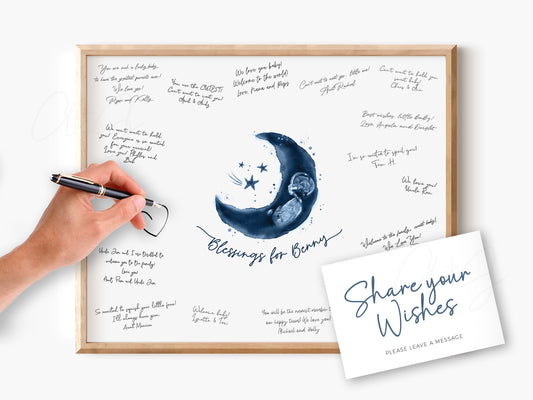 You are such a lucky baby,
to have the greatest parents ever!
We love you!
Pops and Kelly
You are the CUTEST!
Can't wait to meet you!
We love you baby!
Welcome to the world!
Love, Nana and Pops
Can't wait to meet you little one!
Aunt Rachel
Can't wait to hold you
sweet baby!
Best wishes, little Benny!
I'm so excited to spoil you!
Tom H.
We love you!
Uncle Ron
We can't wait to hold
you! Everyone is so excited
for your arrival!
Love you! Phillip and
Blessings for Benny
Welcome to the family, sweet baby!
We Love You!
Uncle Jim and I are thrilled to
welcome you to the family!
Love you!
Aunt Pam and Uncle Jim
So excited to squish your little face!
I'll always love you,
Aunt Monica
Welcome baby!
You will be the newest member to
our happy town! We love you!
Michael and Holly
Share your
Wishes
PLEASE LEAVE A MESSAGE